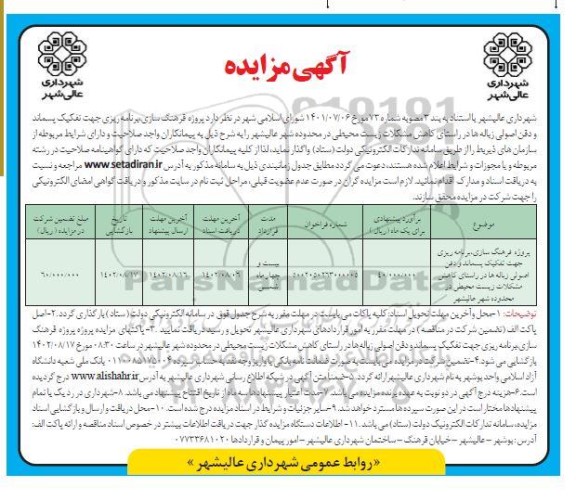 شهرداری
عالی‌شهر
آگهی مزایده
شهرداری
عالی‌شهر
شهرداری عالیشهر با استناد به بند ۳ مصوبه شماره ۷۳ مورخ ۱۴۰۱/۰۷/۰۶ شورای اسلامی شهر در نظر دارد پروژه فرهنگ سازی،برنامه ریزی جهت تفکیک پسماند
و دفن اصولی زباله ها در راستای کاهش مشکلات زیست محیطی در محدوده شهر عالیشهر را به شرح ذیل به پیمانکاران واجد صلاحیت و دارای شرایط مربوطه از
سازمان های ذیربط را از طریق سامانه تدارکات الکترونیکی دولت (ستاد) واگذار نماید، لذا از کلیه پیمانکاران واجد صلاحیت که دارای گواهینامه صلاحیت در رشته
مربوطه و یا مجوزات و شرایط اعلام شده هستند، دعوت می گردد مطابق جدول زمانبندی ذیل به سامانه مذکور به آدرس www.setadiran.ir مراجعه و نسبت
به دریافت اسناد و مدارک اقدام نمائید. لازم است مزایده گران در صورت عدم عضویت قبلی، مراحل ثبت نام در سایت مذکور و دریافت گواهی امضای الکترونیکی
را جهت شرکت در مزایده محقق سازند.
موضوع
برآورد پیشنهادی برای یک ماه (ریال)
شماره فراخوان
مدت قرارداد
آخرین مهلت دریافت اسناد
آخرین مهلت ارسال پیشنهاد
تاریخ بازگشایی
مبلغ تضمین شرکت در مزایده (ریال)
پروژه فرهنگ سازی،برنامه ریزی
جهت تفکیک پسماند و دفن
اصولی زباله ها در راستای کاهش
مشکلات زیست محیطی در
محدوده شهر عالیشهر
بیست و چهار ماه شمسی
۱۴۰۲/۰۸/۰۶
۱۴۰۲/۰۸/۱۶
۱۴۰۲/۰۸/۱۷
۶۰/۰۰۰/۰۰۰
توضیحات: ۱-محل و آخرین مهلت تحویل اسناد: کلیه پاکات می بایست در مهلت مقرر به شرح جدول فوق در سامانه الکترونیکی دولت (ستاد) بارگذاری گردد. ۲-اصل
پاکت الف (تضمین شرکت در مناقصه) در مهلت مقرر به امور قراردادهای شهرداری عالیشهر تحویل و رسید دریافت نمایید. ۳- پاکتهای مزایده پروژه پروژه فرهنگ
سازی،برنامه ریزی جهت تفکیک پسماند و دفن اصولی زباله ها در راستای کاهش مشکلات زیست محیطی در محدوده شهر عالیشهر در ساعت ۰۸:۳۰ مورخ ۱۴۰۲/۰۸/۱۷
بازگشایی می شود. ۴-تضمین شرکت در مزایده می بایست به صورت ضمانت نامه بانکی یا واریز وجه نقد به حساب سپرده بانک ملی شعبه دانشگاه
آزاد اسلامی واحد بوشهر به نام شهرداری عالیشهر ارائه گردد. ۵-ضمنا متن آگهی در شبکه اطلاع رسانی شهرداری عالیشهر به آدرس www.alishahr.ir درج گردیده
است. ۶-هزینه درج آگهی در دو نوبت به عهده برنده مزایده می باشد. ۷-مدت اعتبار پیشنهادها سه ماه از تاریخ افتتاح پیشنهاد می باشد. ۸-شهرداری در رد یک یا تمام
پیشنهادها مختار است در این صورت سپرده ها مسترد خواهد شد. ۹-سایر جزئیات و شرایط در اسناد مزایده درج شده است. ۱۰-محل دریافت و ارسال و بازگشایی اسناد
مزایده، سامانه تدارکات الکترونیک دولت (ستاد) می باشد. ۱۱- اطلاعات دستگاه مزایده گذار جهت دریافت اطلاعات بیشتر در خصوص اسناد مناقصه و ارائه پاکت الف:
آدرس: بوشهر – عالیشهر – خیابان فرهنگ – ساختمان شهرداری عالیشهر – امور پیمان و قراردادها ۰۷۷۳۳۶۸۱۰۲۰
«روابط عمومی شهرداری عالیشهر»